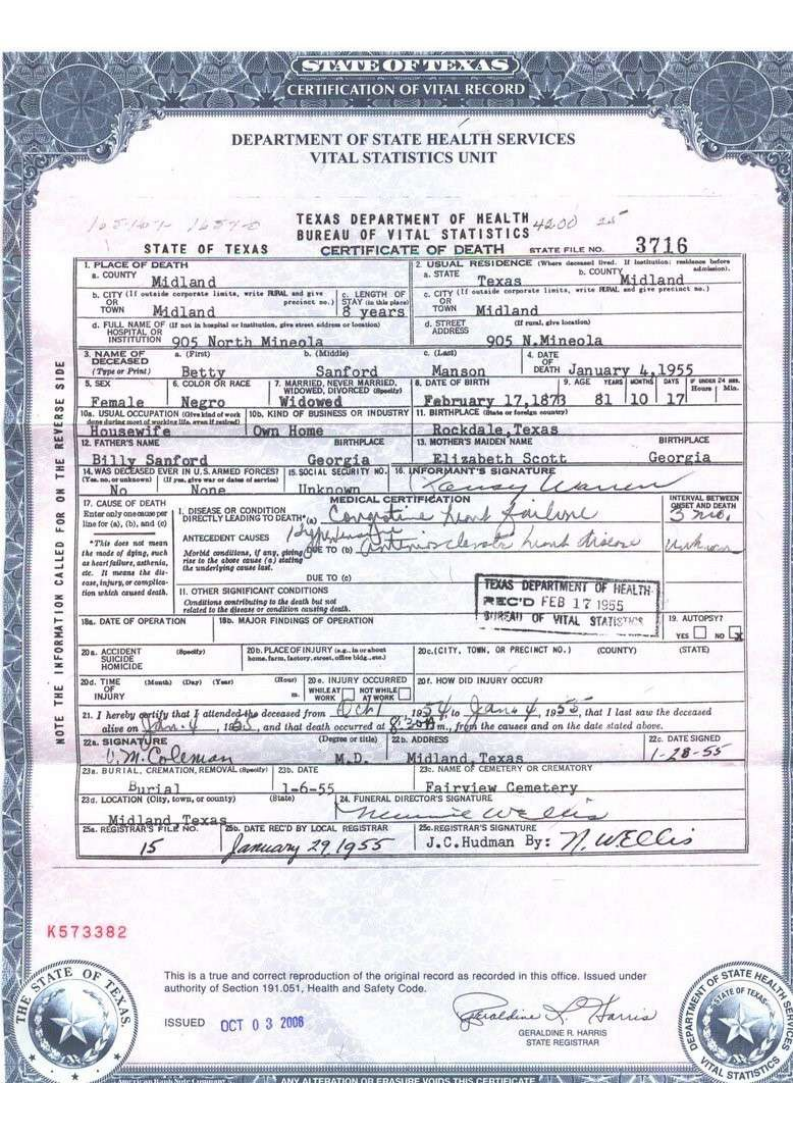 STATE OF TEXAS
CERTIFICATION OF VITAL RECORD
DEPARTMENT OF STATE HEALTH SERVICES
VITAL STATISTICS UNIT
TEXAS DEPARTMENT OF HEALTH 4200 25
BUREAU OF VITAL STATISTICS
STATE OF TEXAS CERTIFICATE OF DEATH STATE FILE NO. 3716
1. PLACE OF DEATH
a. COUNTY Midland
2. USUAL RESIDENCE (Where deceased lived. If institution: residence before admission).
a. STATE Texas b. COUNTY Midland
b. CITY (If outside corporate limits, write RURAL and give precinct no.) OR TOWN Midland
c. LENGTH OF STAY (in this place) 8 years
c. CITY (If outside corporate limits, write RURAL and give precinct no.) OR TOWN Midland
d. FULL NAME OF (If not in hospital or institution, give street address or location) HOSPITAL OR INSTITUTION 905 North Mineola
d. STREET ADDRESS (If rural, give location) 905 N.Mineola
3. NAME OF DECEASED (Type or Print) a. (First) Betty b. (Middle) Sanford c. (Last) Manson
4. DATE OF DEATH January 4,1955
5. SEX Female
6. COLOR OR RACE Negro
7. MARRIED, NEVER MARRIED, WIDOWED, DIVORCED (Specify) Widowed
8. DATE OF BIRTH February 17,1873
9. AGE YEARS 81 MONTHS 10 DAYS 17 IF UNDER 24 HRS. Hours Min.
10a. USUAL OCCUPATION (Give kind of work done during most of working life, even if retired) Housewife
10b. KIND OF BUSINESS OR INDUSTRY Own Home
11. BIRTHPLACE (State or foreign country) Rockdale,Texas
12. FATHER'S NAME Billy Sanford BIRTHPLACE Georgia
13. MOTHER'S MAIDEN NAME Elizabeth Scott BIRTHPLACE Georgia
14. WAS DECEASED EVER IN U.S. ARMED FORCES? (Yes, no, or unknown) No (If yes, give war or dates of service) None
15. SOCIAL SECURITY NO. Unknown
16. INFORMANT'S SIGNATURE Warren
17. CAUSE OF DEATH
Enter only one cause per line for (a), (b), and (c)
*This does not mean the mode of dying, such as heart failure, asthenia, etc. It means the disease, injury, or complication which caused death.
MEDICAL CERTIFICATION
INTERVAL BETWEEN ONSET AND DEATH
I. DISEASE OR CONDITION DIRECTLY LEADING TO DEATH* (a) Congestive heart failure 3 mo.
ANTECEDENT CAUSES
Morbid conditions, if any, giving rise to the above cause (a) stating the underlying cause last.
DUE TO (b) heart disease Unknown
DUE TO (c)
II. OTHER SIGNIFICANT CONDITIONS
Conditions contributing to the death but not related to the disease or condition causing death.
TEXAS DEPARTMENT OF HEALTH
REC'D FEB 17 1955
BUREAU OF VITAL STATISTICS
18a. DATE OF OPERATION
18b. MAJOR FINDINGS OF OPERATION
19. AUTOPSY? YES NO X
20a. ACCIDENT SUICIDE HOMICIDE (Specify)
20b. PLACE OF INJURY (e.g., in or about home, farm, factory, street, office bldg., etc.)
20c. (CITY, TOWN, OR PRECINCT NO.) (COUNTY) (STATE)
20d. TIME OF INJURY (Month) (Day) (Year) (Hour) m.
20e. INJURY OCCURRED WHILE AT WORK NOT WHILE AT WORK
20f. HOW DID INJURY OCCUR?
21. I hereby certify that I attended the deceased from Oct 1, 1954, to Jan 4, 1955, that I last saw the deceased
alive on Jan. 4, 1955, and that death occurred at m., from the causes and on the date stated above.
22a. SIGNATURE Coleman (Degree or title) M.D.
22b. ADDRESS Midland,Texas
22c. DATE SIGNED 1-28-55
23a. BURIAL, CREMATION, REMOVAL (Specify) Burial
23b. DATE 1-6-55
23c. NAME OF CEMETERY OR CREMATORY Fairview Cemetery
23d. LOCATION (City, town, or county) (State) Midland,Texas
24. FUNERAL DIRECTOR'S SIGNATURE
25a. REGISTRAR'S FILE NO. 15
25b. DATE REC'D BY LOCAL REGISTRAR January 29, 1955
25c. REGISTRAR'S SIGNATURE J.C.Hudman By: N. Wellis
NOTE THE INFORMATION CALLED FOR ON THE REVERSE SIDE
K573382
This is a true and correct reproduction of the original record as recorded in this office. Issued under
authority of Section 191.051, Health and Safety Code.
ISSUED OCT 03 2008
Geraldine R. Harris
GERALDINE R. HARRIS
STATE REGISTRAR
THE STATE OF TEXAS.
DEPARTMENT OF STATE HEALTH SERVICES
STATE OF TEXAS
VITAL STATISTICS
American Bank Note Company
ANY ALTERATION OR ERASURE VOIDS THIS CERTIFICATE